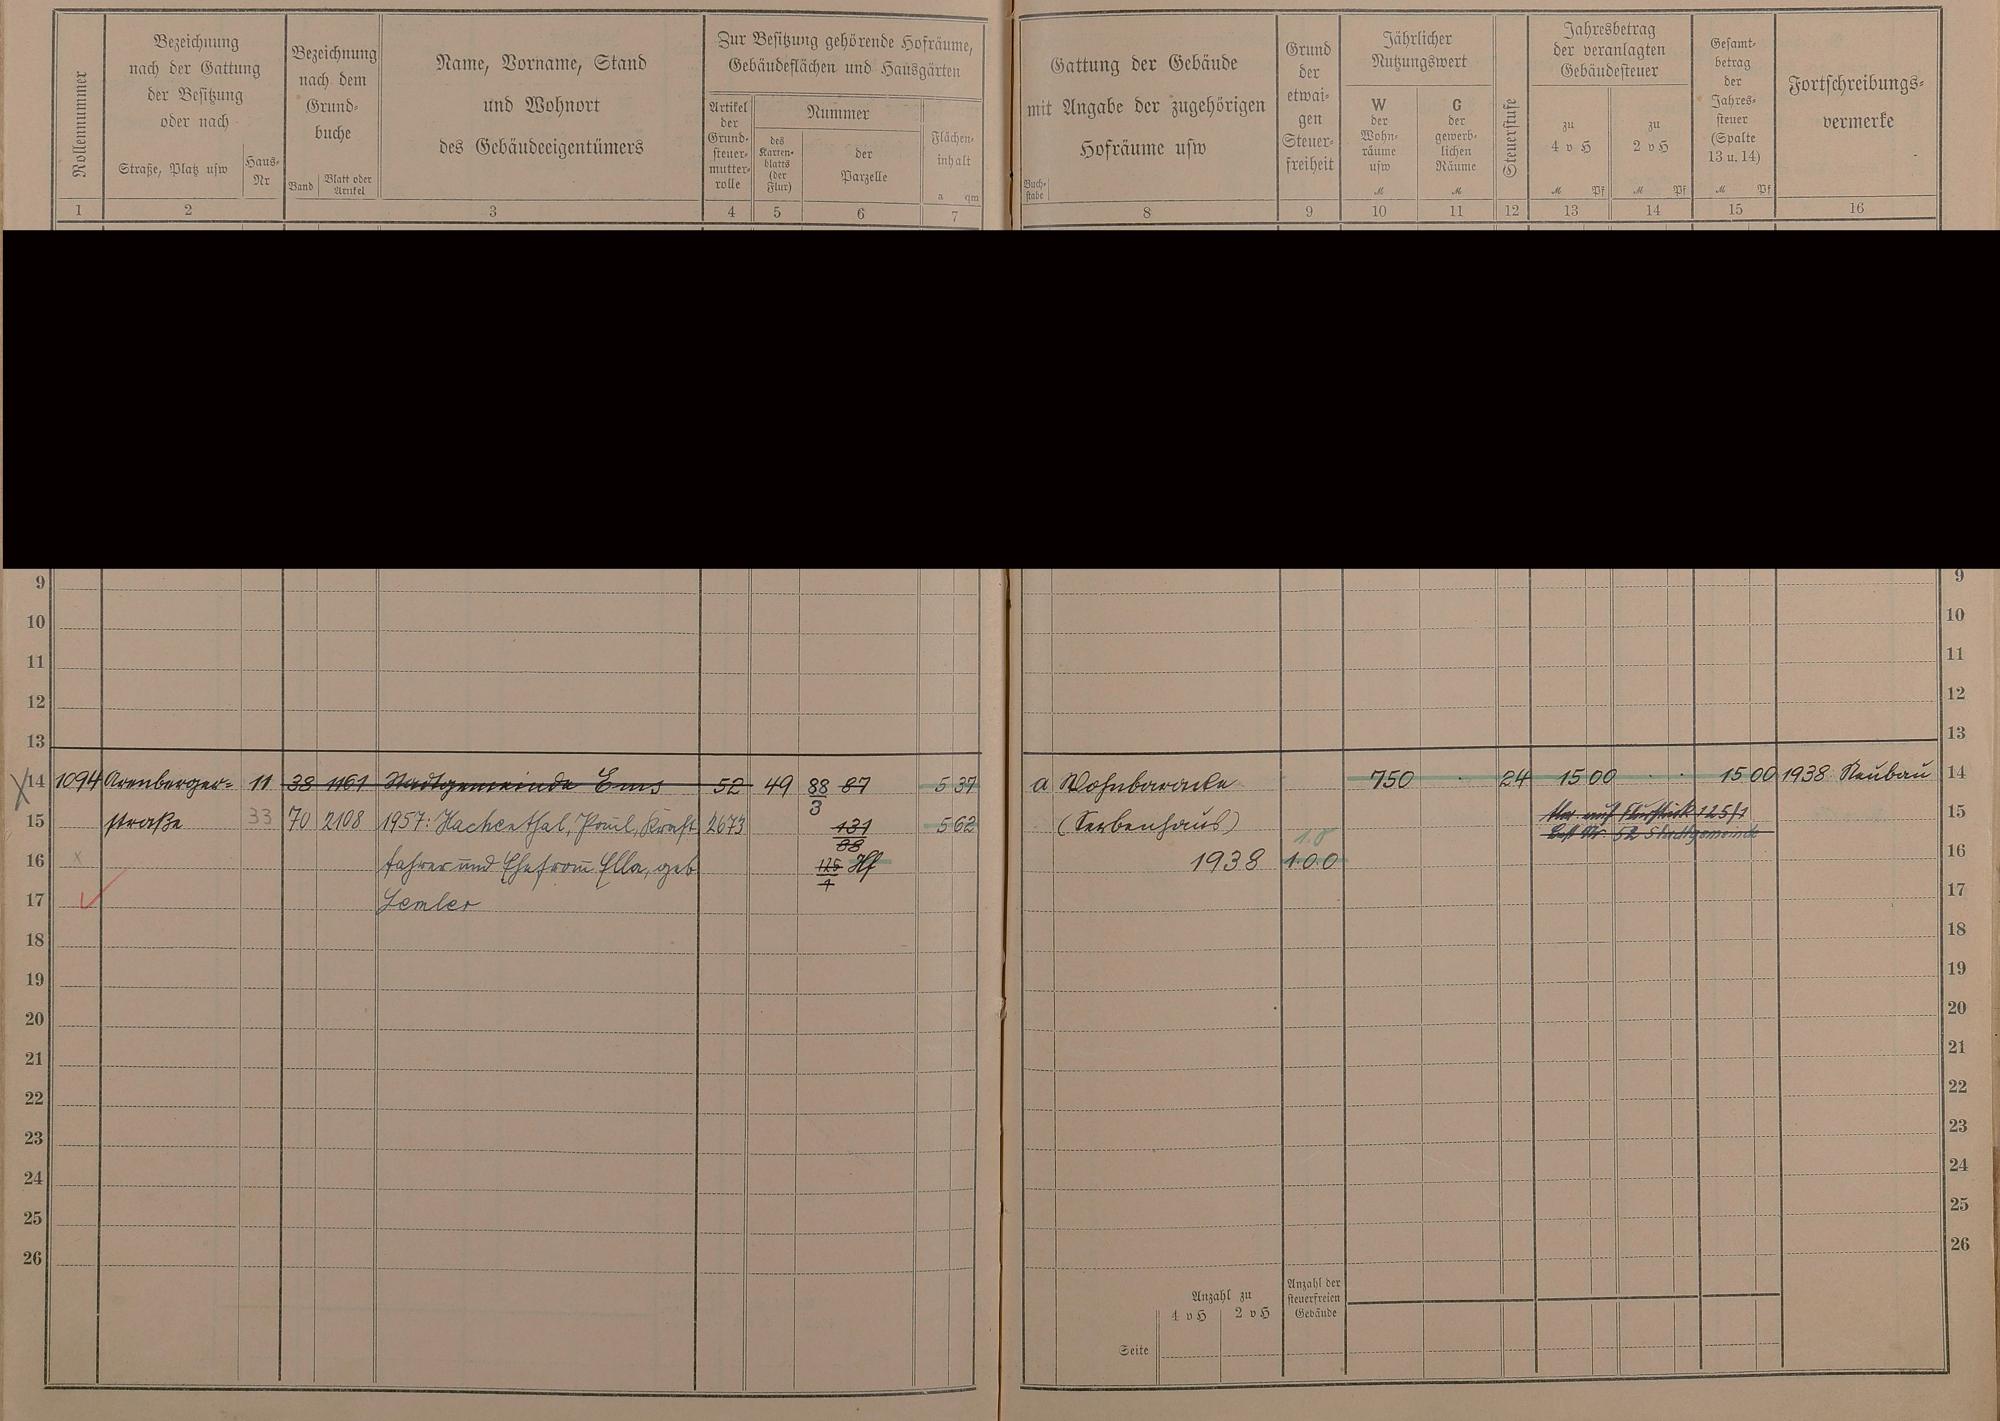 Rollennummer
Bezeichnung
nach der Gattung
der Besitzung
oder nach
Straße, Platz usw
Haus-
Nr
Bezeichnung
nach dem
Grund-
buche
Band
Blatt oder
Artikel
Name, Vorname, Stand
und Wohnort
des Gebäudeeigentümers
Zur Besitzung gehörende Hofräume,
Gebäudeflächen und Hausgärten
Artikel
der
Grund-
steuer-
mutter-
rolle
Nummer
des
Karten-
blatts
(der
Flur)
der
Parzelle
Flächen-
inhalt
a qm
1 2 3 4 5 6 7
Gattung der Gebäude
mit Angabe der zugehörigen
Hofräume usw
Buch-
stabe
Grund
der
etwai-
gen
Steuer-
freiheit
Jährlicher
Nutzungswert
W
der
Wohn-
räume
usw
M
G
der
gewerb-
lichen
Räume
M
Steuerstufe
Jahresbetrag
der veranlagten
Gebäudesteuer
zu
4 v H
M Pf
zu
2 v H
M Pf
Gesamt-
betrag
der
Jahres-
steuer
(Spalte
13 u. 14)
M Pf
Fortschreibungs-
vermerke
8 9 10 11 12 13 14 15 16
9 9
10 10
11 11
12 12
13 13
14 1094 Arenberger- 11 38 1161 Stadtgemeinde Ems 52 49 88/3 87 5 37 a Wohnbaracke 750 24 15 00 15 00 1938 Neubau 14
15 straße 33 70 2108 1957: Hachenthal, Paul, Kraft 2673 131/88 5 62 (Serbenhaus) 15
16 fahrer und Ehefrau Ella, geb 125/1 Hf 1938 100 16
17 Lemler 17
18 18
19 19
20 20
21 21
22 22
23 23
24 24
25 25
26 26
Anzahl zu
4 v H 2 v H
Anzahl der
steuerfreien
Gebäude
Seite